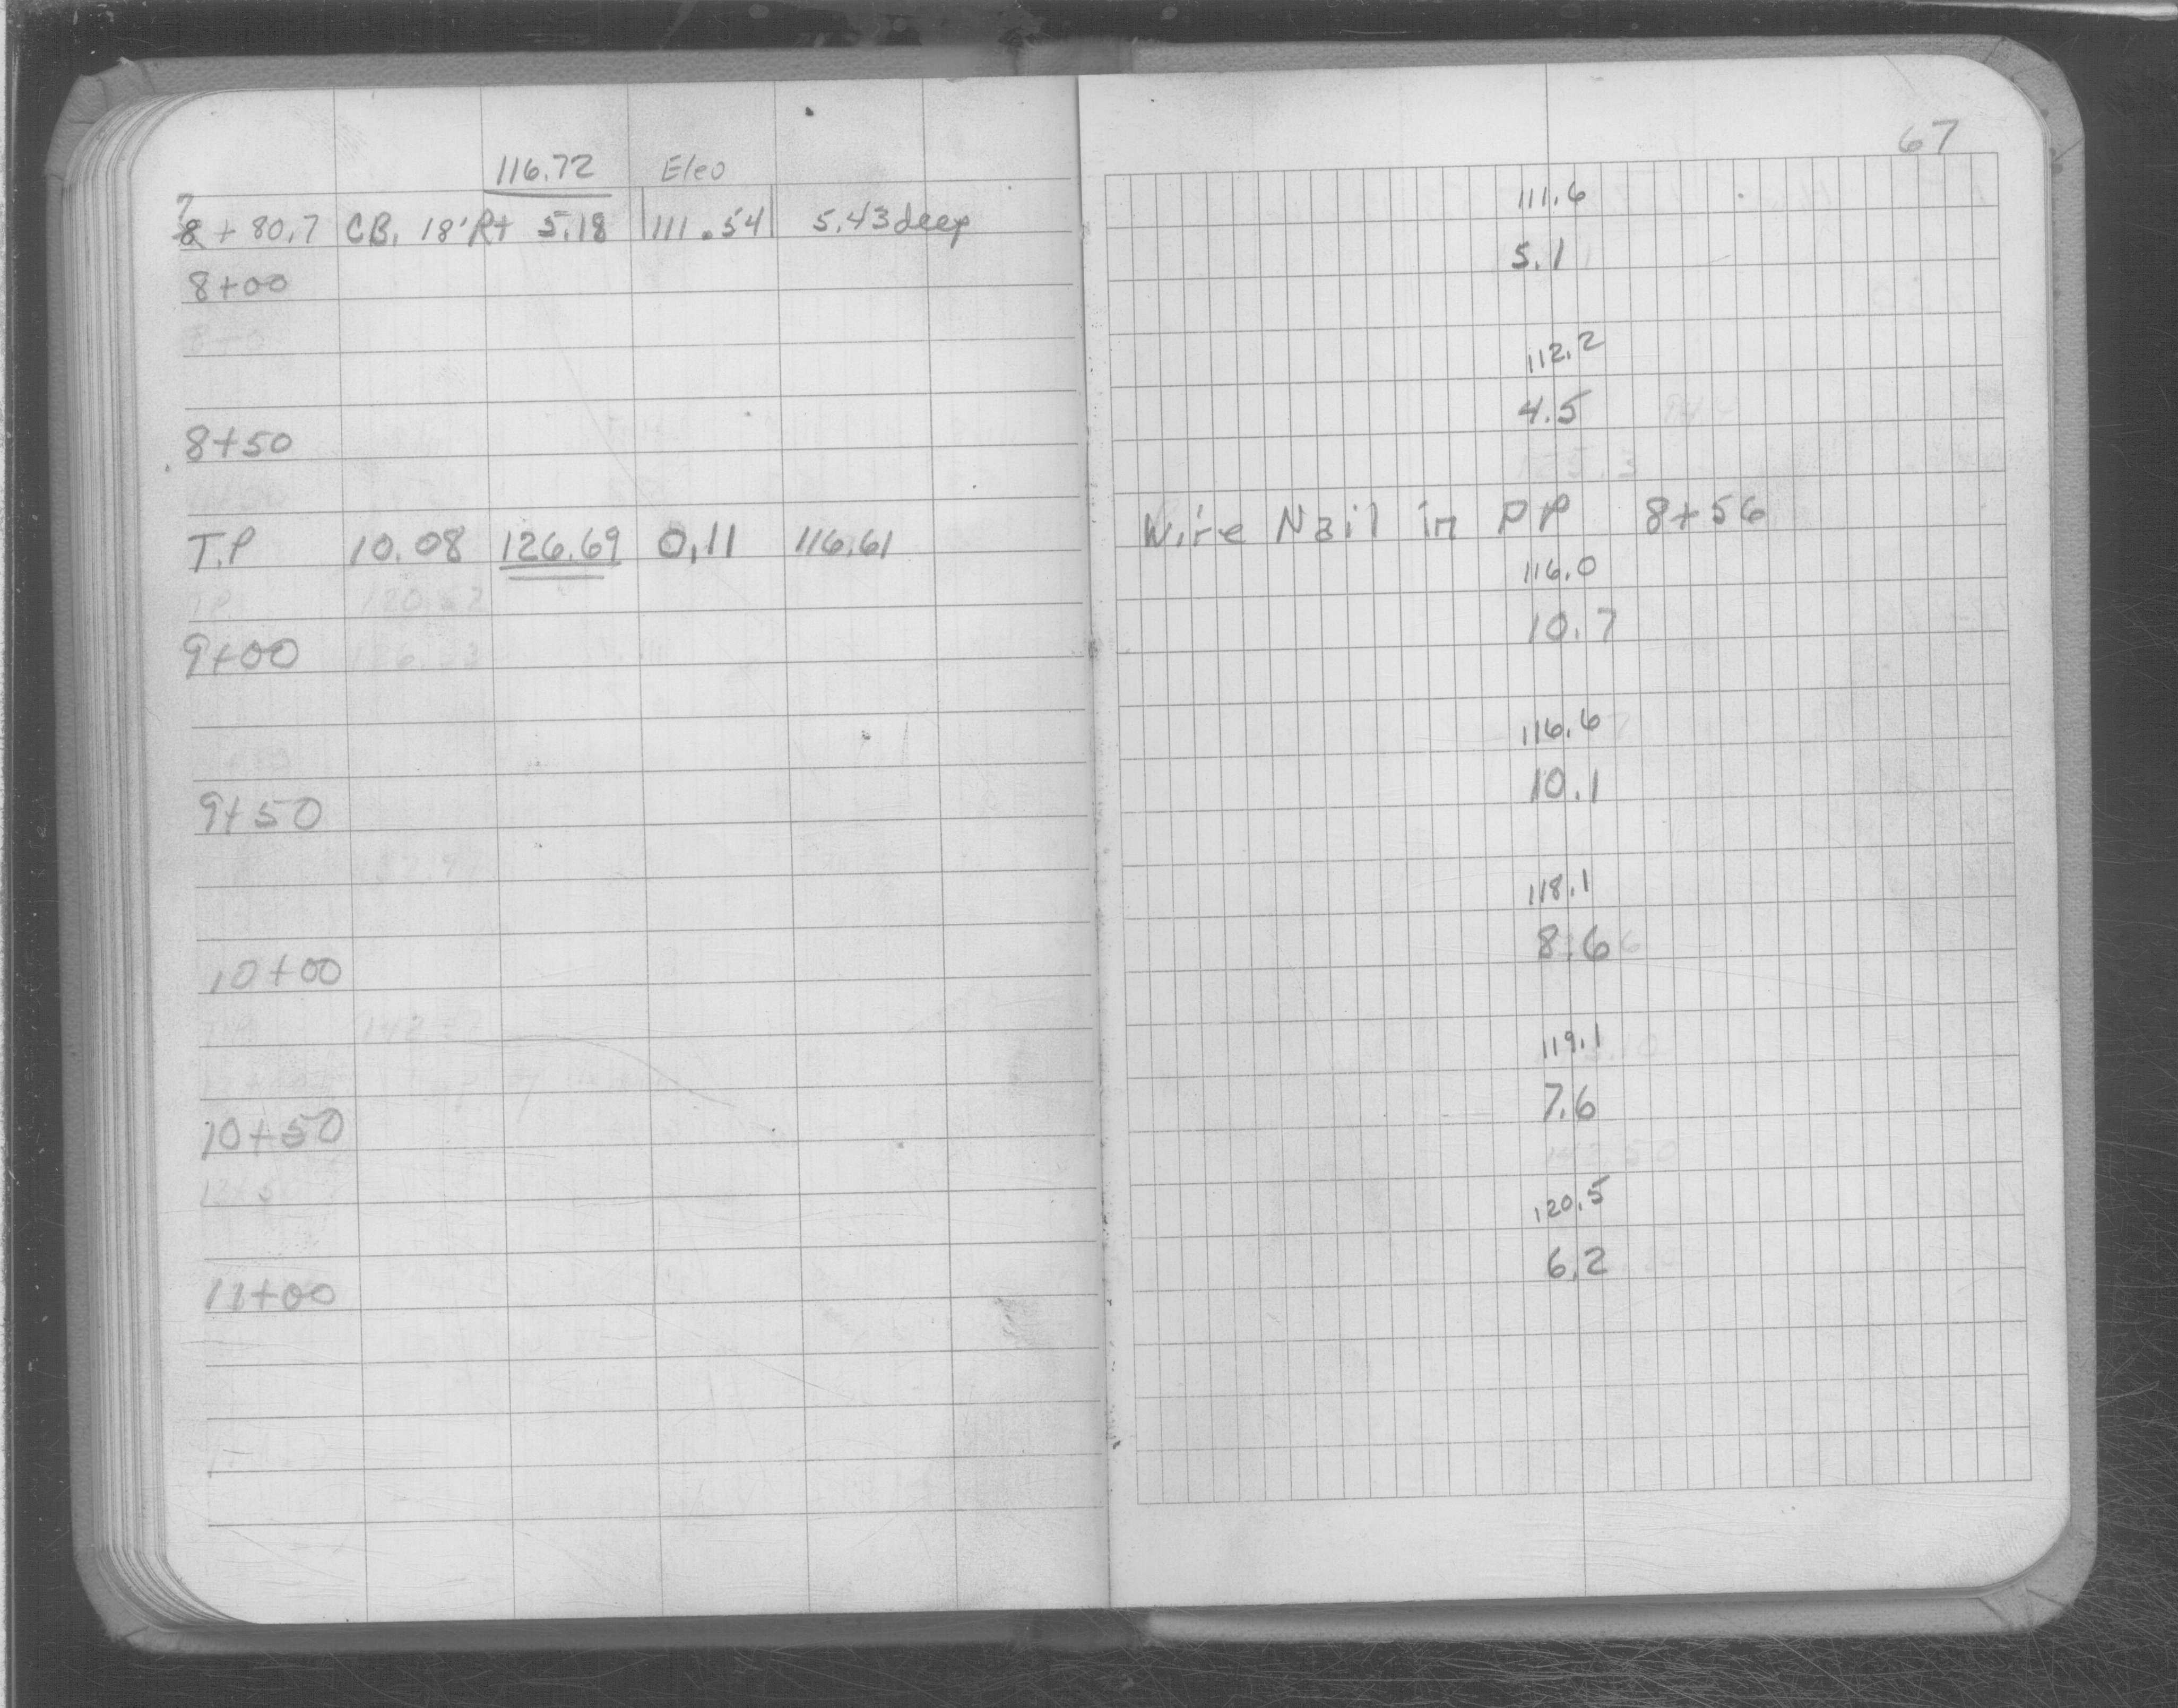 67
116.72 Elev
7
8+80.7 CB. 18'Rt 5.18 111.54 5.43 deep
111.6
8+00 5.1
112.2
8+50 4.5
T.P 10.08 126.69 0.11 116.61 Wire Nail in PP 8+56
116.0
9+00 10.7
116.6
9+50 10.1
118.1
10+00 8.6
119.1
10+50 7.6
120.5
11+00 6.2